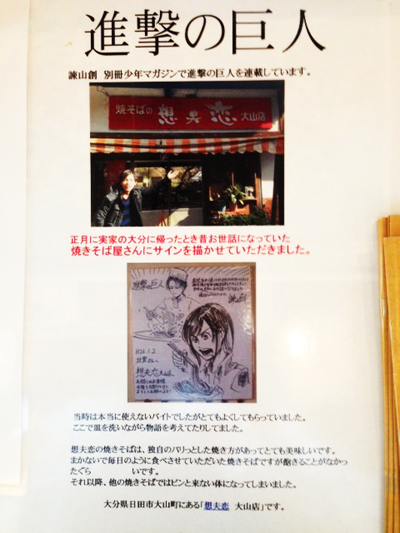 進撃の巨人
諫山創 別冊少年マガジンで進撃の巨人を連載しています。
焼そばの 想夫恋 大山店
正月に実家の大分に帰ったとき昔お世話になっていた
焼きそば屋さんにサインを描かせていただきました。
進撃の巨人
想夫恋
当時は本当に使えないバイトでしたがとてもよくしてもらっていました。
ここで皿を洗いながら物語を考えてたりしてました。
想夫恋の焼きそばは、独自のパリっとした焼き方があってとても美味しいです。
まかないで毎日のように食べさせていただいた焼きそばですが飽きることがなかっ
たぐら いです。
それ以降、他の焼きそばではピンと来ない体になってしまいました。
大分県日田市大山町にある「想夫恋 大山店」です。